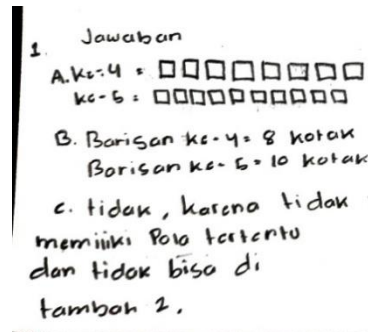 Jawaban
1.
A. Ke-4 =
ke-5 =
B. Barisan ke-4 = 8 kotak
Barisan ke-5 = 10 kotak
C. tidak, karena tidak
memiliki Pola tertentu
dan tidak bisa di
tambah 2.